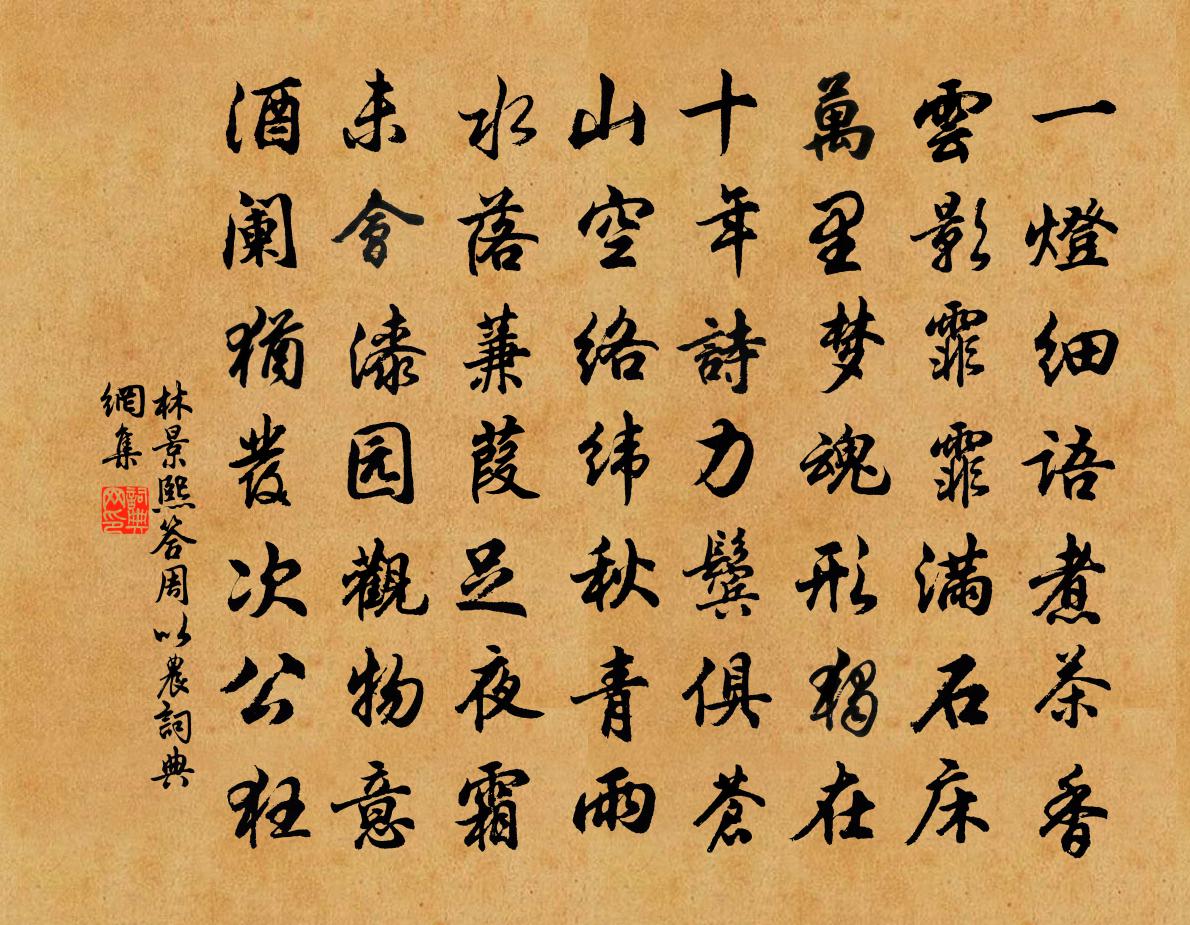 一燈細語煮茶香
雲影霏霏滿石床
萬里梦魂形獨在
十年詩力鬢俱蒼
山空絡緯秋青雨
水落蒹葭足夜霜
未會漆园觀物意
酒阑猶發次公狂
林景熙答周以農詞典
網集
詞典
网印